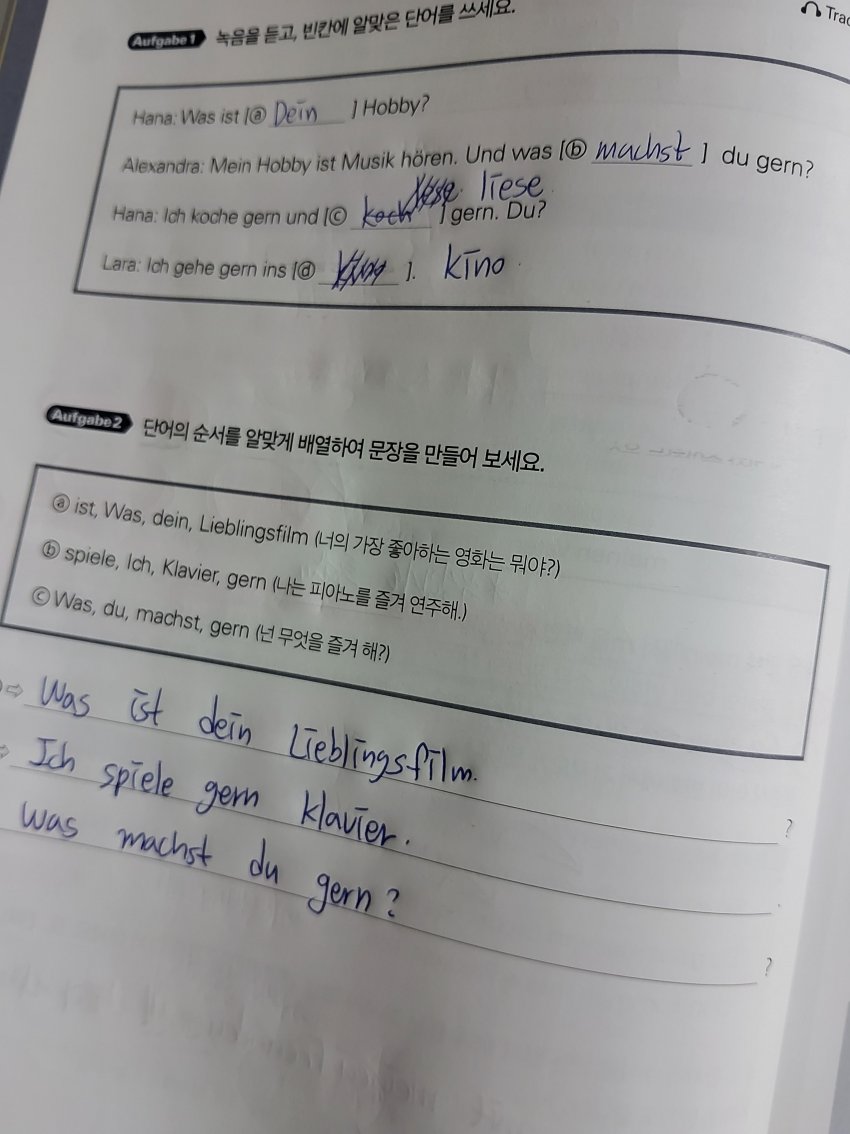 Aufgabe 1 녹음을 듣고, 빈칸에 알맞은 단어를 쓰세요.
Trac
Hana: Was ist [ⓐ Dein ] Hobby?
Alexandra: Mein Hobby ist Musik hören. Und was [ⓑ machst ] du gern?
Hana: Ich koche gern und [ⓒ koch lese liese ] gern. Du?
Lara: Ich gehe gern ins [ⓓ ]. kino
Aufgabe 2 단어의 순서를 알맞게 배열하여 문장을 만들어 보세요.
ⓐ ist, Was, dein, Lieblingsfilm (너의 가장 좋아하는 영화는 뭐야?)
ⓑ spiele, Ich, Klavier, gern (나는 피아노를 즐겨 연주해.)
ⓒ Was, du, machst, gern (넌 무엇을 즐겨 해?)
⇨ Was ist dein Lieblingsfilm. ?
⇨ Ich spiele gern klavier. .
Was machst du gern? ?